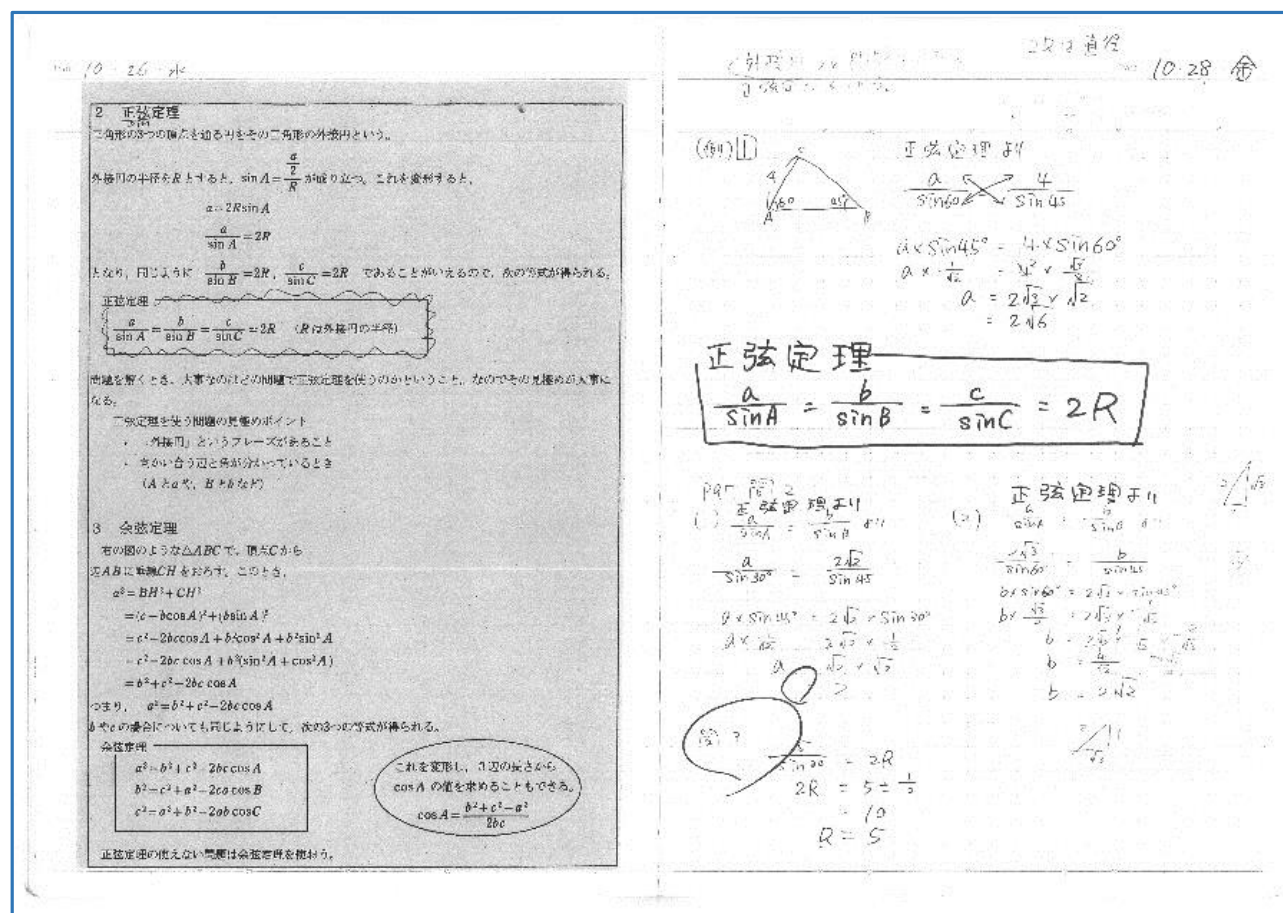 10・26・水
2 正弦定理
三角形の3つの頂点を通る円をその三角形の外接円という。
外接円の半径をRとすると、sin A = (a/2)/R が成り立つ。これを変形すると、
a=2RsinA
a/sin A = 2R
となり、同じように b/sin B = 2R, c/sin C = 2R であることがいえるので、次の等式が得られる。
正弦定理
a/sin A = b/sin B = c/sin C = 2R (Rは外接円の半径)
問題を解くとき、大事なのはどの問題で正弦定理を使うのかということ。なのでその見極めが大事に
なる。
正弦定理を使う問題の見極めポイント
・ 「外接円」というフレーズがあること
・ 向かい合う辺と角が分かっているとき
(Aとaや、Bとbなど)
3 余弦定理
右の図のような△ABCで、頂点Cから
辺ABに垂線CHをおろす。このとき、
a²=BH²+CH²
=(c-bcosA)²+(bsin A)²
=c²-2bccosA+b²cos²A+b²sin²A
=c²-2bc cos A+b²(sin²A+cos²A)
=b²+c²-2bc cos A
つまり、 a²=b²+c²-2bc cos A
bやcの場合についても同じようにして、次の3つの等式が得られる。
余弦定理
a²=b²+c²-2bc cos A
b²=c²+a²-2ca cos B
c²=a²+b²-2ab cosC
これを変形し、3辺の長さから
cos A の値を求めることもできる。
cos A = (b²+c²-a²)/2bc
正弦定理の使えない問題は余弦定理を使おう。
2Rは直径
10・28 金
(例)1
C
4
A 60° 45° B
正弦定理より
a/sin60 = 4/sin45
a×sin45° = 4×sin60°
a×1/√2 = 4×√3/2
a = 2√3×√2
= 2√6
正弦定理
a/sinA = b/sinB = c/sinC = 2R
正弦定理より
a/sinA = b/sinB より
a/sin30° = 2√2/sin45
a×sin45° = 2√2×sin30°
a×1/√2 = 2√2×1/2
a = √2×√2
2
(2) 正弦定理より
a/sinA = b/sinB より
2√3/sin60 = b/sin45
b×sin60° = 2√3×sin45°
b×√3/2 = 2√3×1/√2
b = 4/√2
b = 2√2
問3
5/sin30° = 2R
2R = 5÷1/2
= 10
R = 5